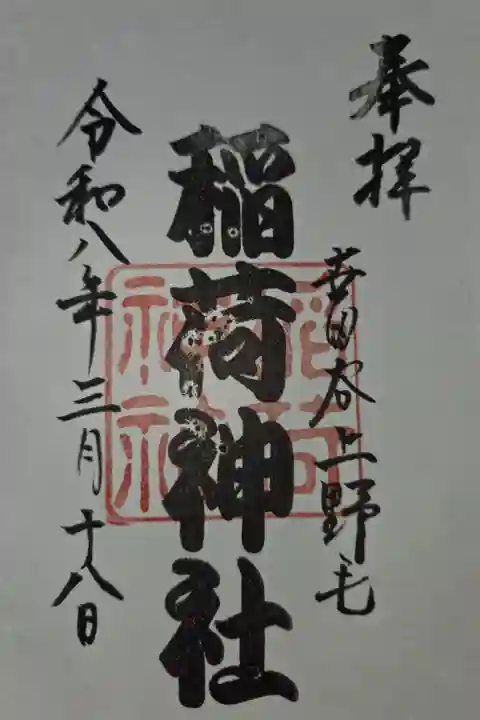 奉拝
世田谷上野毛
稲荷神社
稲荷
神社
令和八年三月十八日